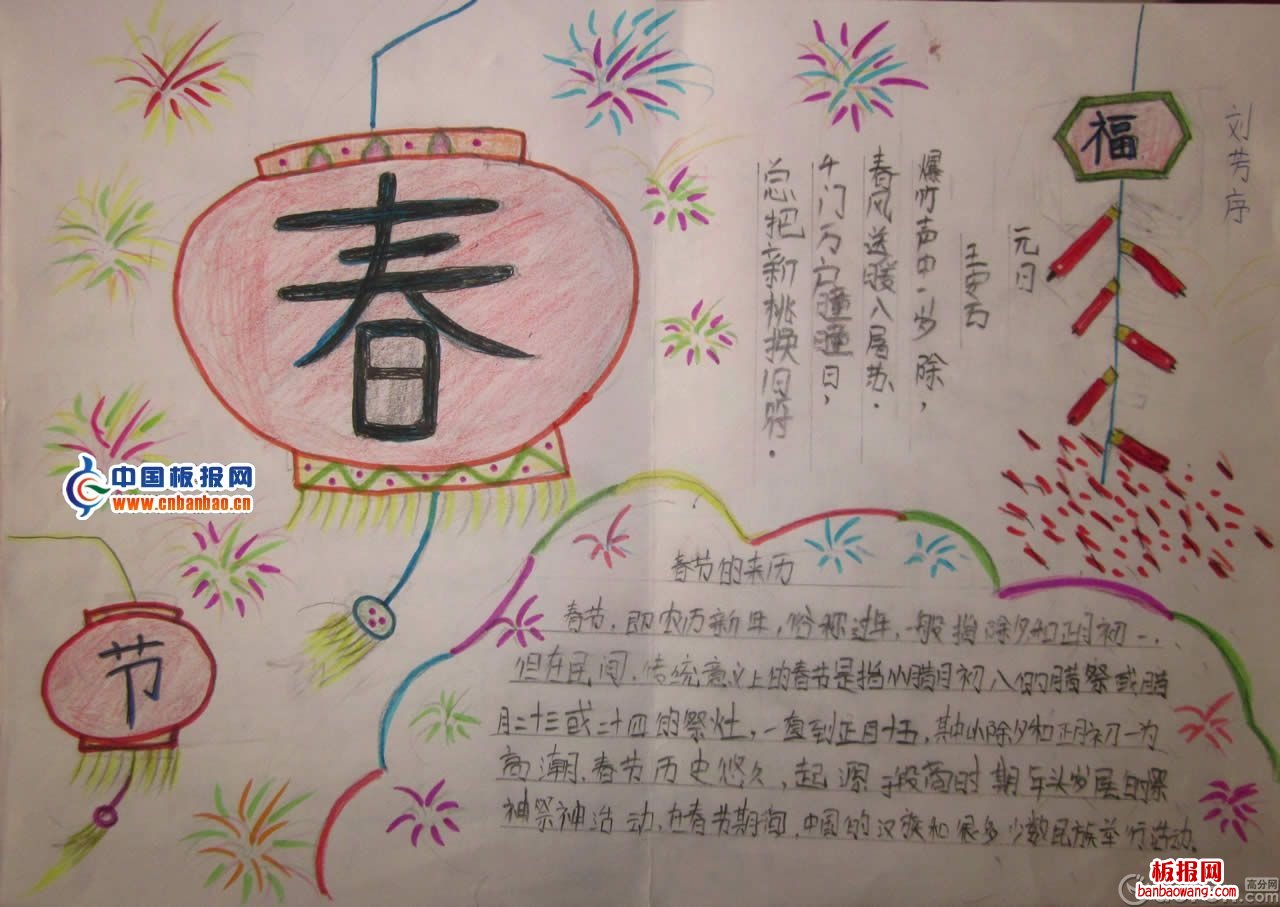 春
节
福
刘芳序
元日
王安石
爆竹声中一岁除，
春风送暖入屠苏．
千门万户瞳瞳日，
总把新桃换旧符．
春节的来历
春节，即农历新年，俗称过年，一般指除夕和正月初一．
但在民间，传统意义上的春节是指从腊月初八的腊祭或腊
月二十三或二十四的祭灶，一直到正月十五，其中以除夕和正月初一为
高潮．春节历史悠久，起源于殷商时期年头岁尾的祭
神祭神活动．在春节期间，中国的汉族和很多少数民族举行活动．
中国板报网
www.cnbanbao.cn
板报网
banbaowang.com
高分网